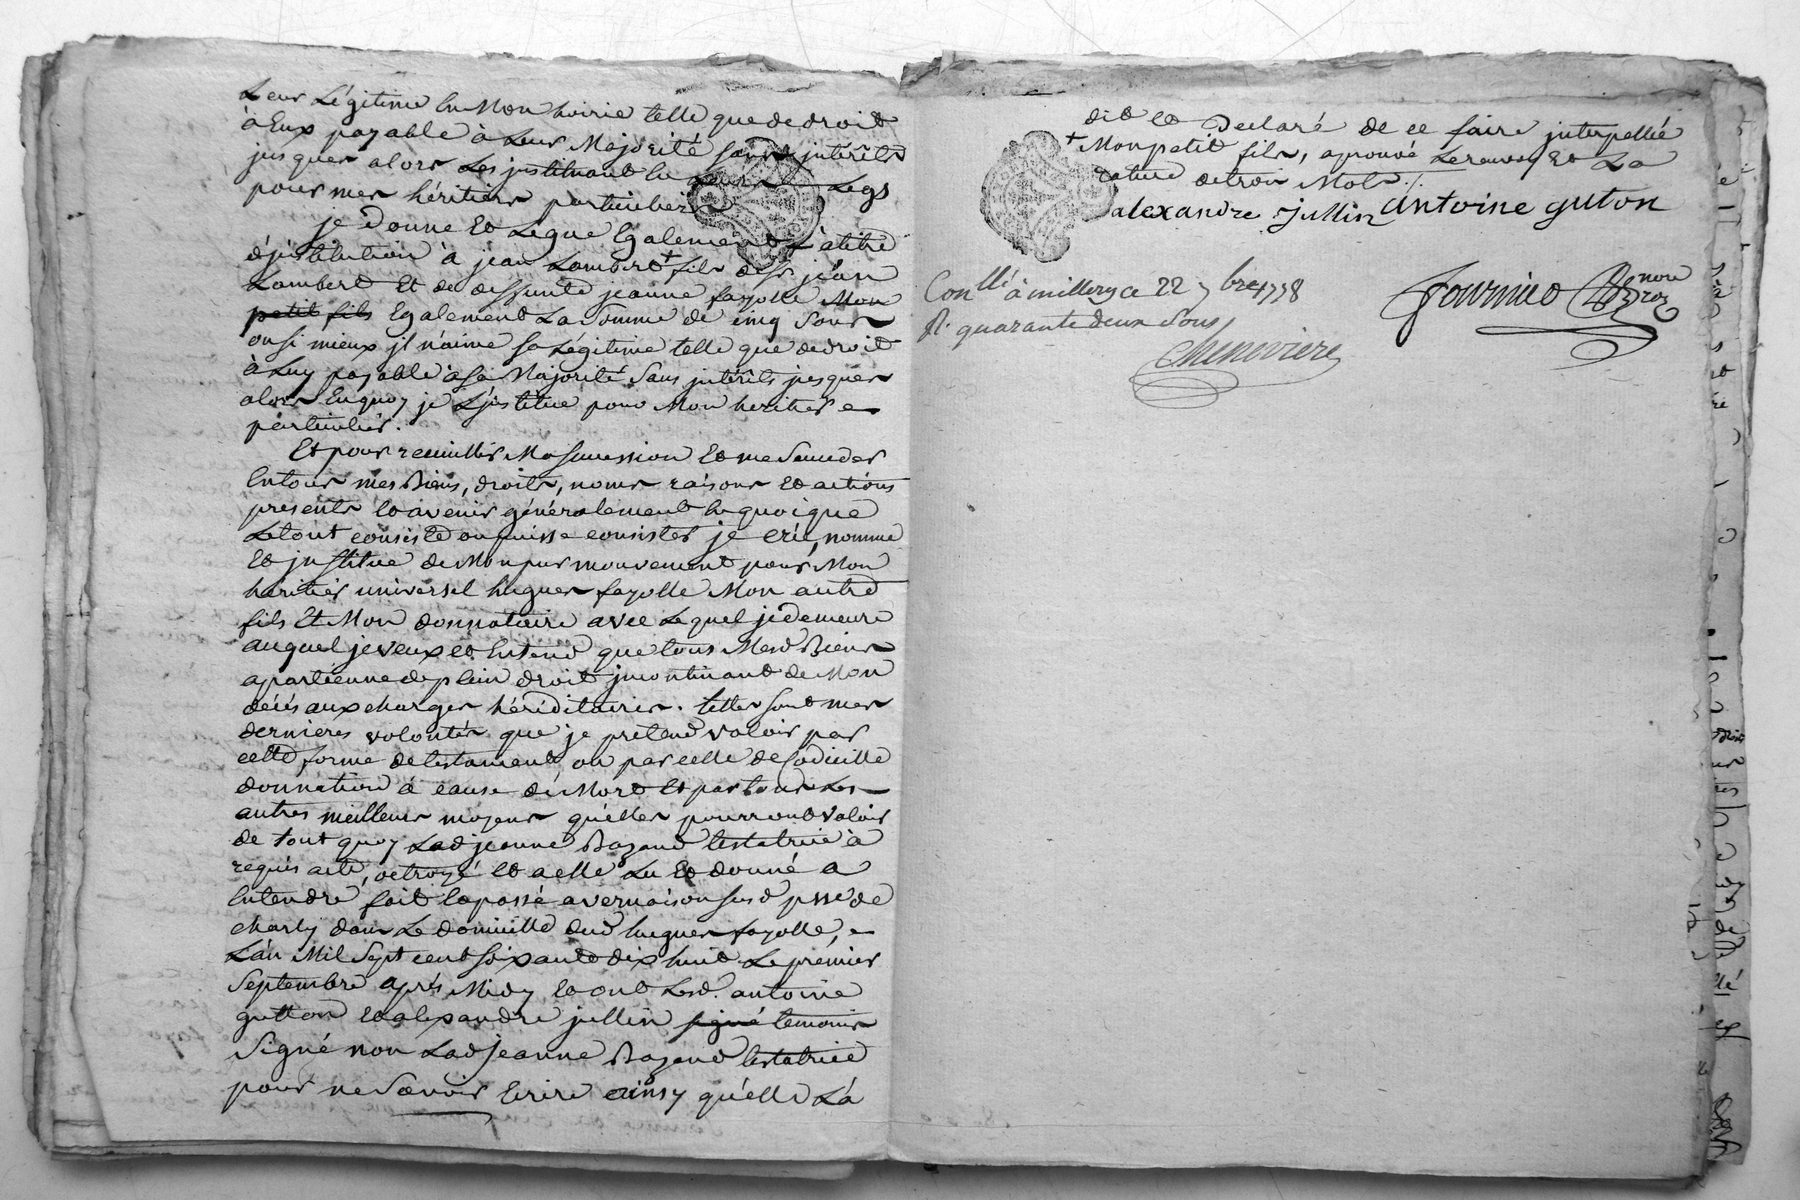 Leur Légitime En Mon hoirie telle que de droit
à Eux payable à Leur Majorité sans intérêts
jusques alors Les jnstituant En Leurs Legs
pour mes héritiers particuliers
je Donne Et Legue Egalement à titre
d'jnstitution à jean Lambert + fils de Sr jean
Lambert Et de deffunte jeanne fayolle Mon
petit fils Egalement La Somme de cinq Sous
ou si mieux jl n'aime sa Légitime telle que de droit
à Luy payable à sa Majorité Sans jntérêts jusques
alors En quoy je L'jnstitue pour Mon heritier
particulier.
Et pour recuillir Ma Succession Et me Succeder
En tous mes Biens, droits, noms raisons Et actions
presents Et avenir généralement En quoique
Le tout consiste ou puisse consister je créé, nomme
Et jnstitue de Mon pur mouvement pour Mon
héritier universel hugues fayolle Mon autre
fils Et Mon donnataire avec Lequel je demeure
auquel je veux Et Entend que tous Mesd Biens
apartienne de plein droit jncontinant de Mon
décés aux charges héréditaires. telles sont mes
dernieres volontés que je prétend valoir par
cette forme de testament, ou par celle de Codicille
donnation à cause de Mort Et par tous Les
autres meilleurs moyens qu'elles pourront valoir
de tout quoy Lad jeanne Bazand testatrice à
requis acte, octroyé Et a elle Lu Et donné a
Entendre fait Et passé a vernaison susd psse de
charly dans Le domicille dud hugues fayolle,
L'an Mil Sept cent Soixante dix huit Le premier
Septembre après Midy Et ont Lesd. antoine
gutton Et alexandre jullin signé temoins
Signé non Lad jeanne Bazand testatrice
pour ne Savoir Ecrire ainsy qu'elle L'a
dit Et Declaré de ce faire jnterpellée
+ Mon petit fils, aprouvé Le renvoy Et La
rature de trois Mots ./.
alexandre jullin antoine guton
Con.llé à millery ce 22 7bre 1778
R. quarante deux Sous
Chenevière
fournier